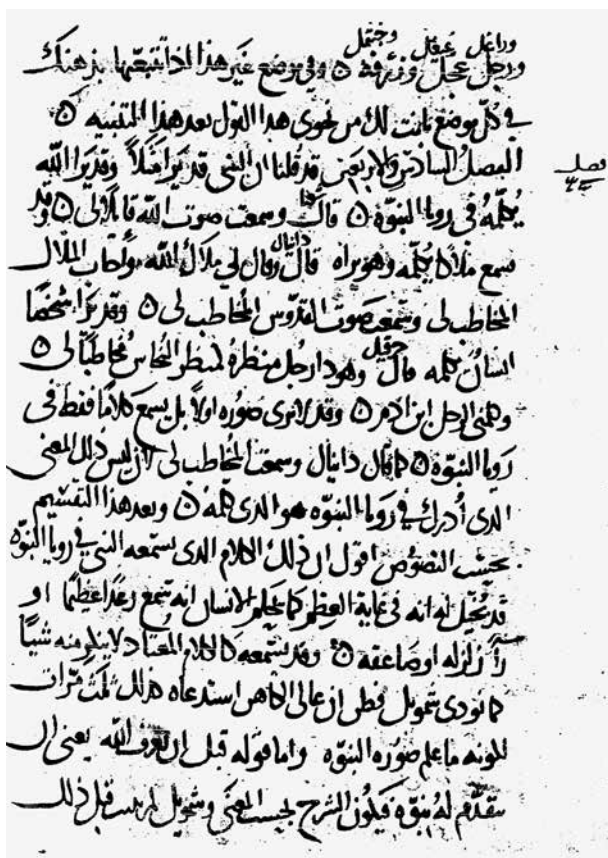 وراغل عيقل وختمل
ورجل عجل وفي موضع غير هذا اذا تتبعتها بذهنك
في كل موضع بانت لك من فحوى هذا القول بعد هذا التنبيه ه
الفصل السادس والاربعين قد قلنا ان النبي قد يرا مثلاً وقد يرا الله
فصل
يكلمه فى رويا النبوة ه قال وسمعت صوت الله قايلا لى ه وقد
يسمع ملاكا يكلمه وهو يراه قال دانيال وقال لي ملاك الله واجاب الملاك
المخاطب لى وسمعت صوت القدوس المخاطب لى ه وقد يرا شخصا
انسان يكلمه قال حزقيل وهودا رجل منظره كمنظر النحاس مخاطباً لى ه
وكلمنى الرجل ابن ادم ه وقد لا يرى صوره اولا بل يسمع كلاما فقط فى
رويا النبوة ه كما قال دانيال وسمعت المخاطب لى لان ليس ذلك المعنى
الذى أدرك في رويا النبوه هو الذى كلمه ه وبعد هذا التقسيم
بحسب النصوص اقول ان ذلك الكلام الذى يسمعه النبي في رويا النبوه
قد يخيل له انه فى غاية العظم كما يحلم الانسان انه سمع رعدا عظيما او
رأ زلزله او صاعقه ه وقد يسمعه كالكلام المعتاد لا ينكر منه شيأ
كما نودى شمويل فظن ان عالى الكاهن استدعاه كذلك ثلث مرات
لكونه ما علم صوره النبوه واما قوله قبل ان تعرف الله يعنى ان
تتقدم له نبوه فيكون الشرح بحسب المعنى وشمويل لم قبل ذلك